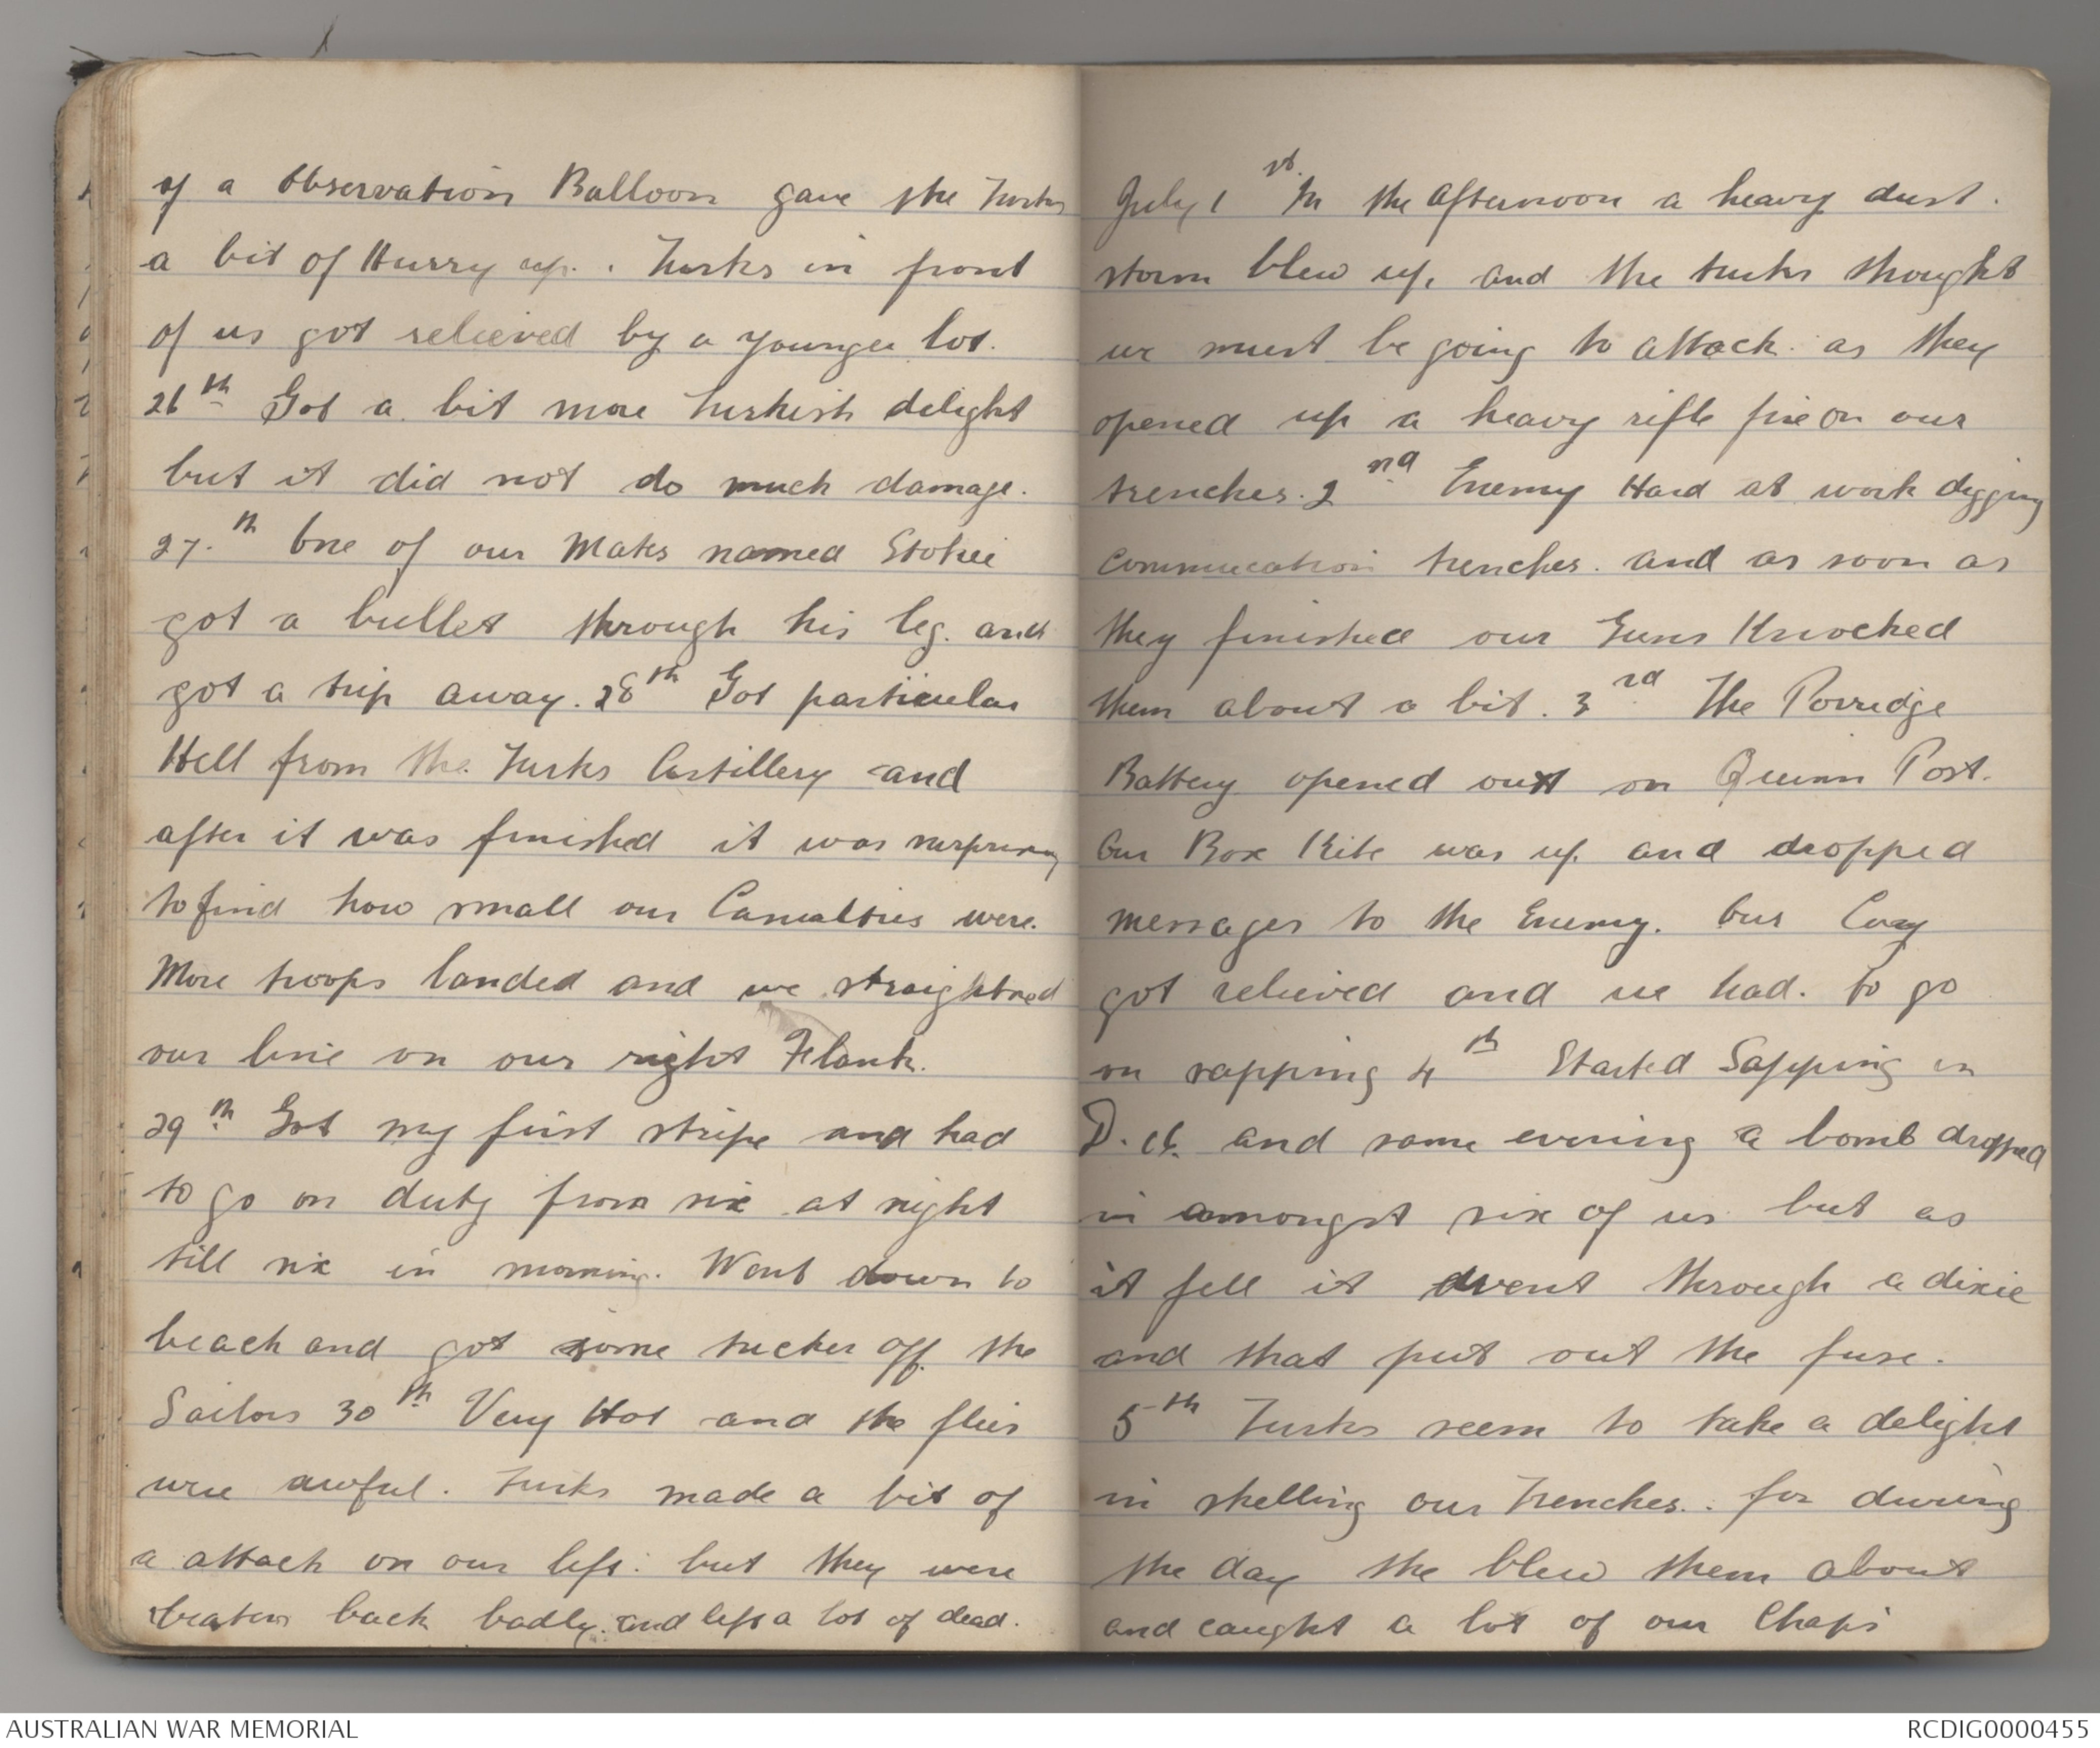 of a Observation Balloon gave the Turks
a bit of Hurry up. Turks in front
of us got relieved by a younger lot.
26th Got a bit more Turkish delight
but it did not do much damage.
27.th One of our Mates named Stokie
got a bullet through his leg. and
got a trip away. 28th Got particular
Hell from the Turks Artillery and
after it was finished it was surprising
to find how small our Casualties were.
More troops landed and we straightned
our line on our right Flank.
29th Got my first stripe and had
to go on duty from six at night
till six in morning. Went down to
beach and got some tucker off the
Sailors 30th Very Hot and the flies
were awful. Turks made a bit of
a attack on our left. but they were
beaten back badly. and left a lot of dead.
July 1st. In the afternoon a heavy dust.
storm blew up, and the turks thought
we must be going to attack. as they
opened up a heavy rifle fire on our
trenches. 2nd Enemy Hard at work digging
trenches. and as soon as
they finished our Guns Knocked
them about a bit. 3rd The Porridge
Battery opened out on Quinn Post.
Our Box Kite was up and dropped
messages to the Enemy. Our Coay
got relieved and we had. to go
on sapping 4th Started Sapping in
and same evening a bomb dropped
in amongst six of us but as
it fell it went through a dixie
and that put out the fuse.
5th Turks seem to take a delight
in shelling our Trenches. for during
the day the blew them about
and caught a lot of our Chaps
AUSTRALIAN WAR MEMORIAL
RCDIG0000455